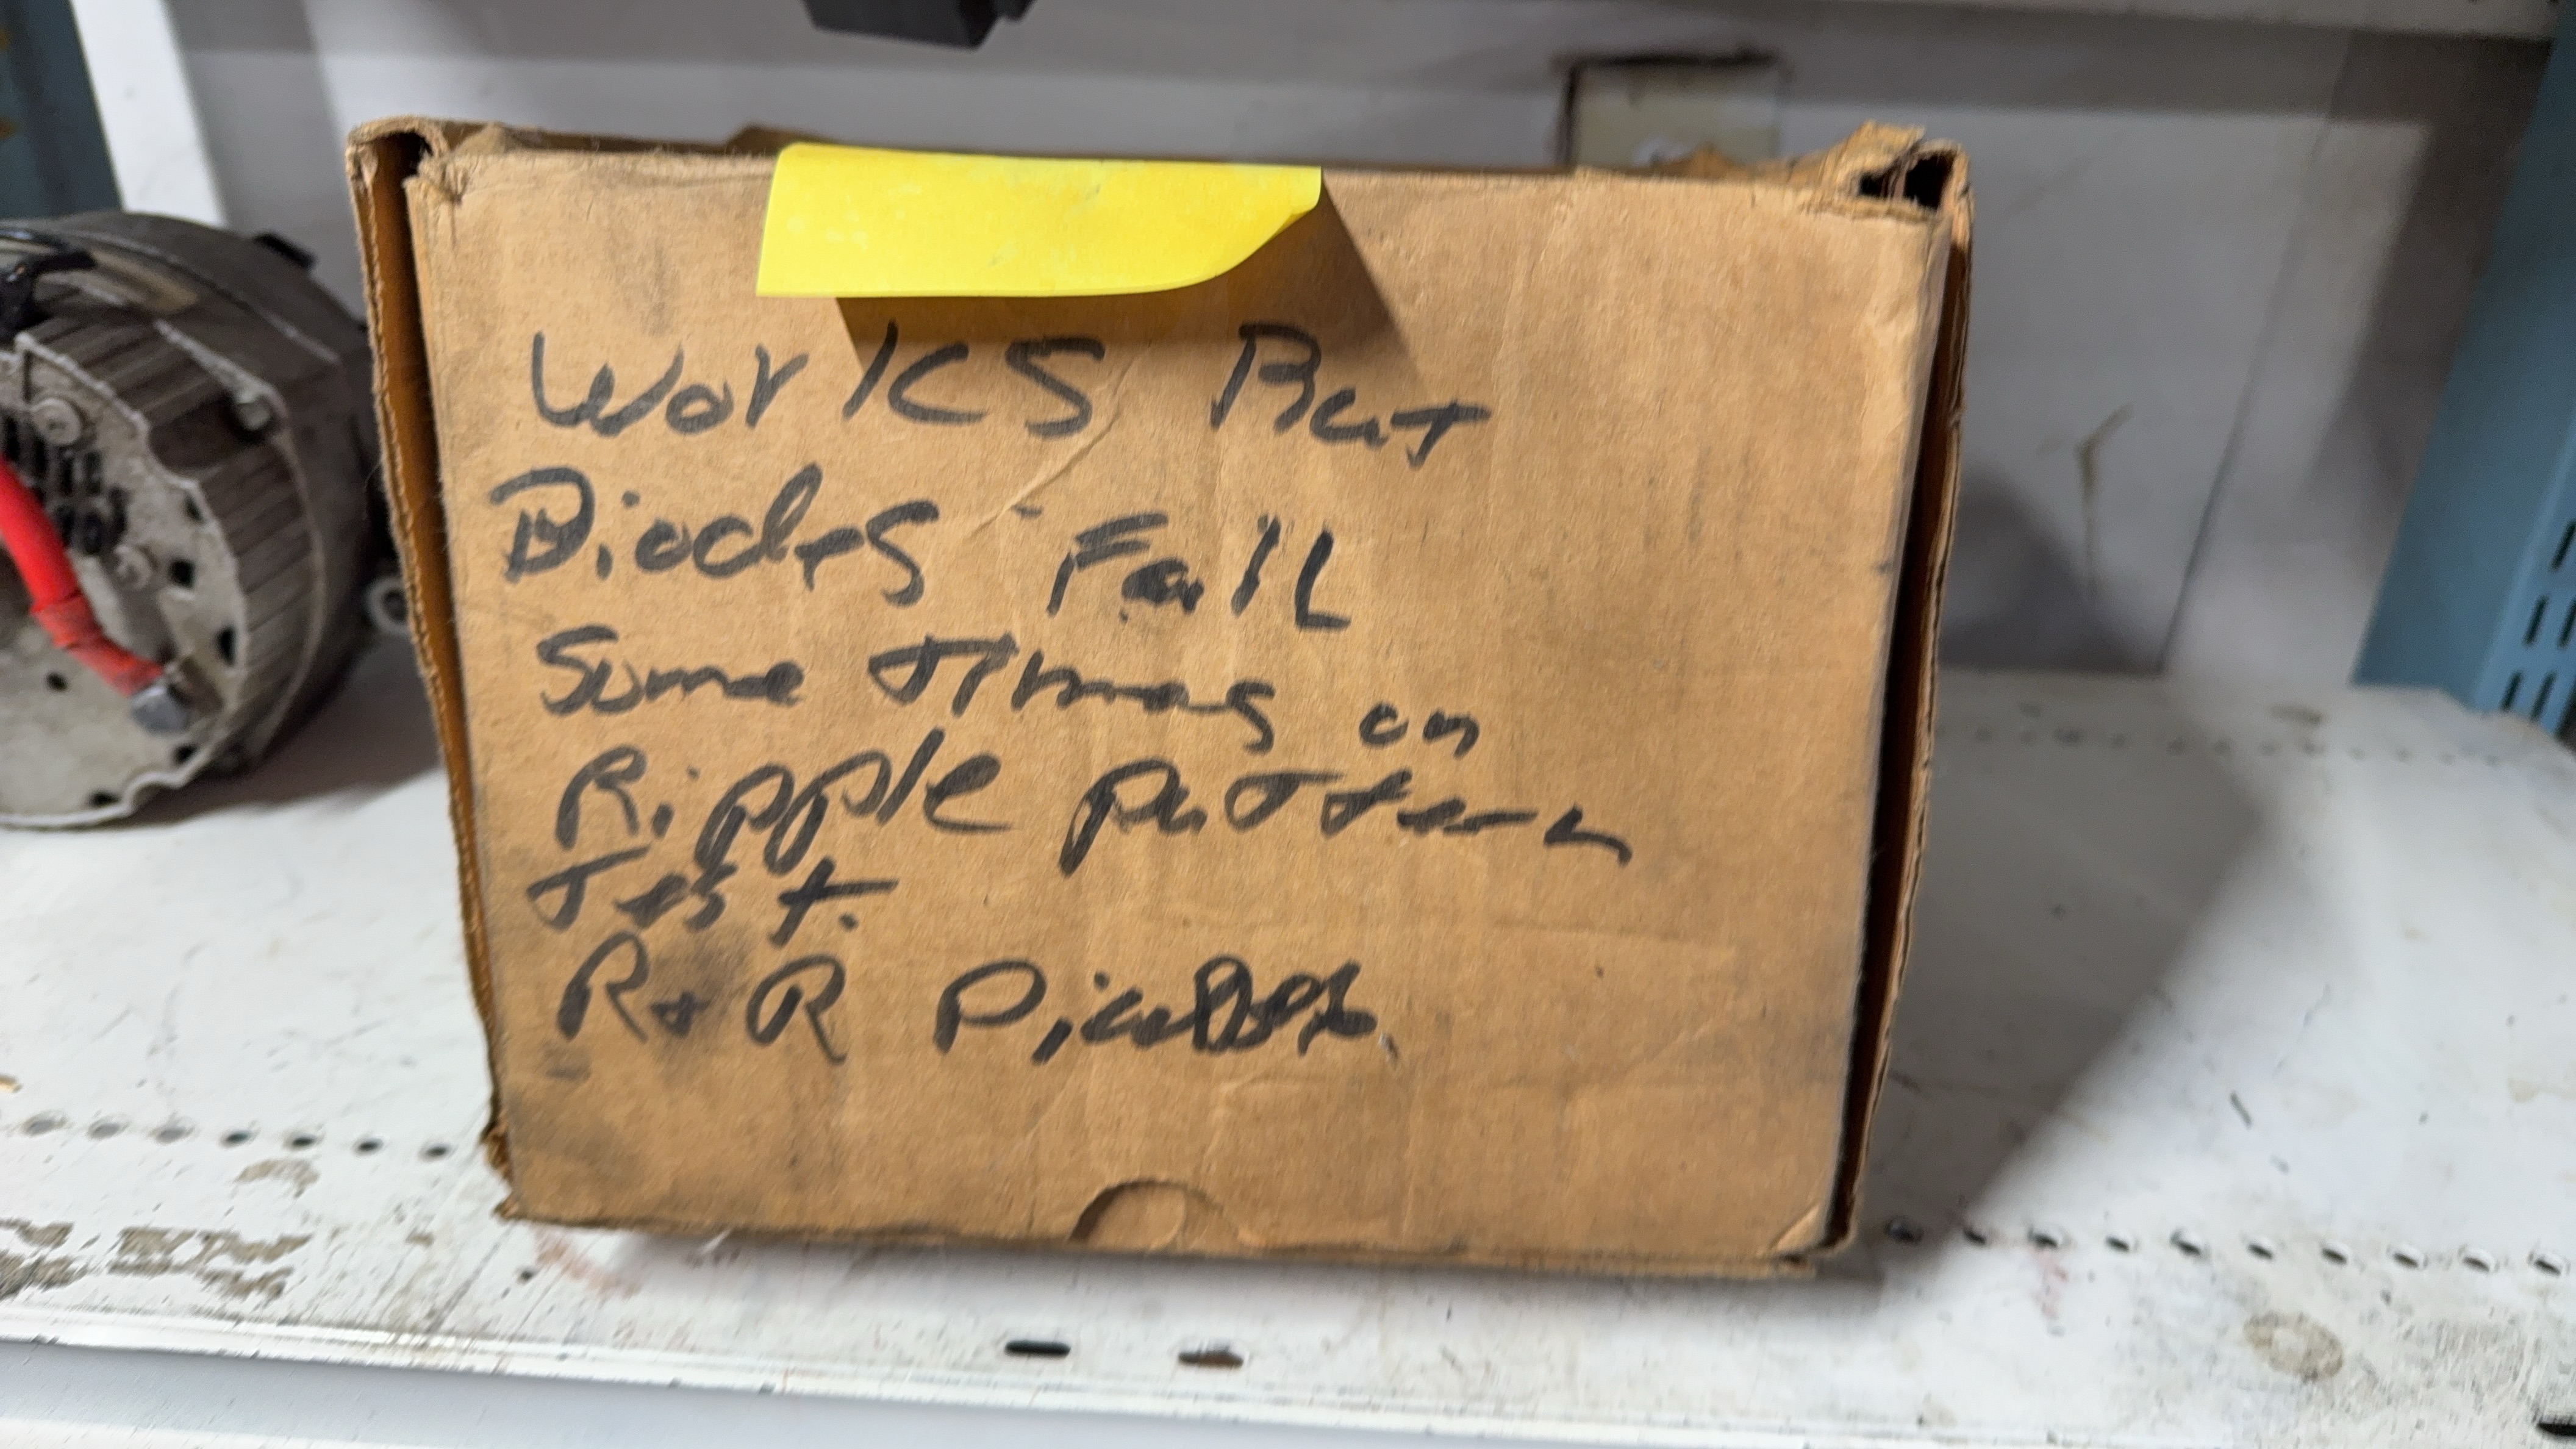 Works But
Diodes Fail
Some Times on
Ripple Pattern
Test.
R & R